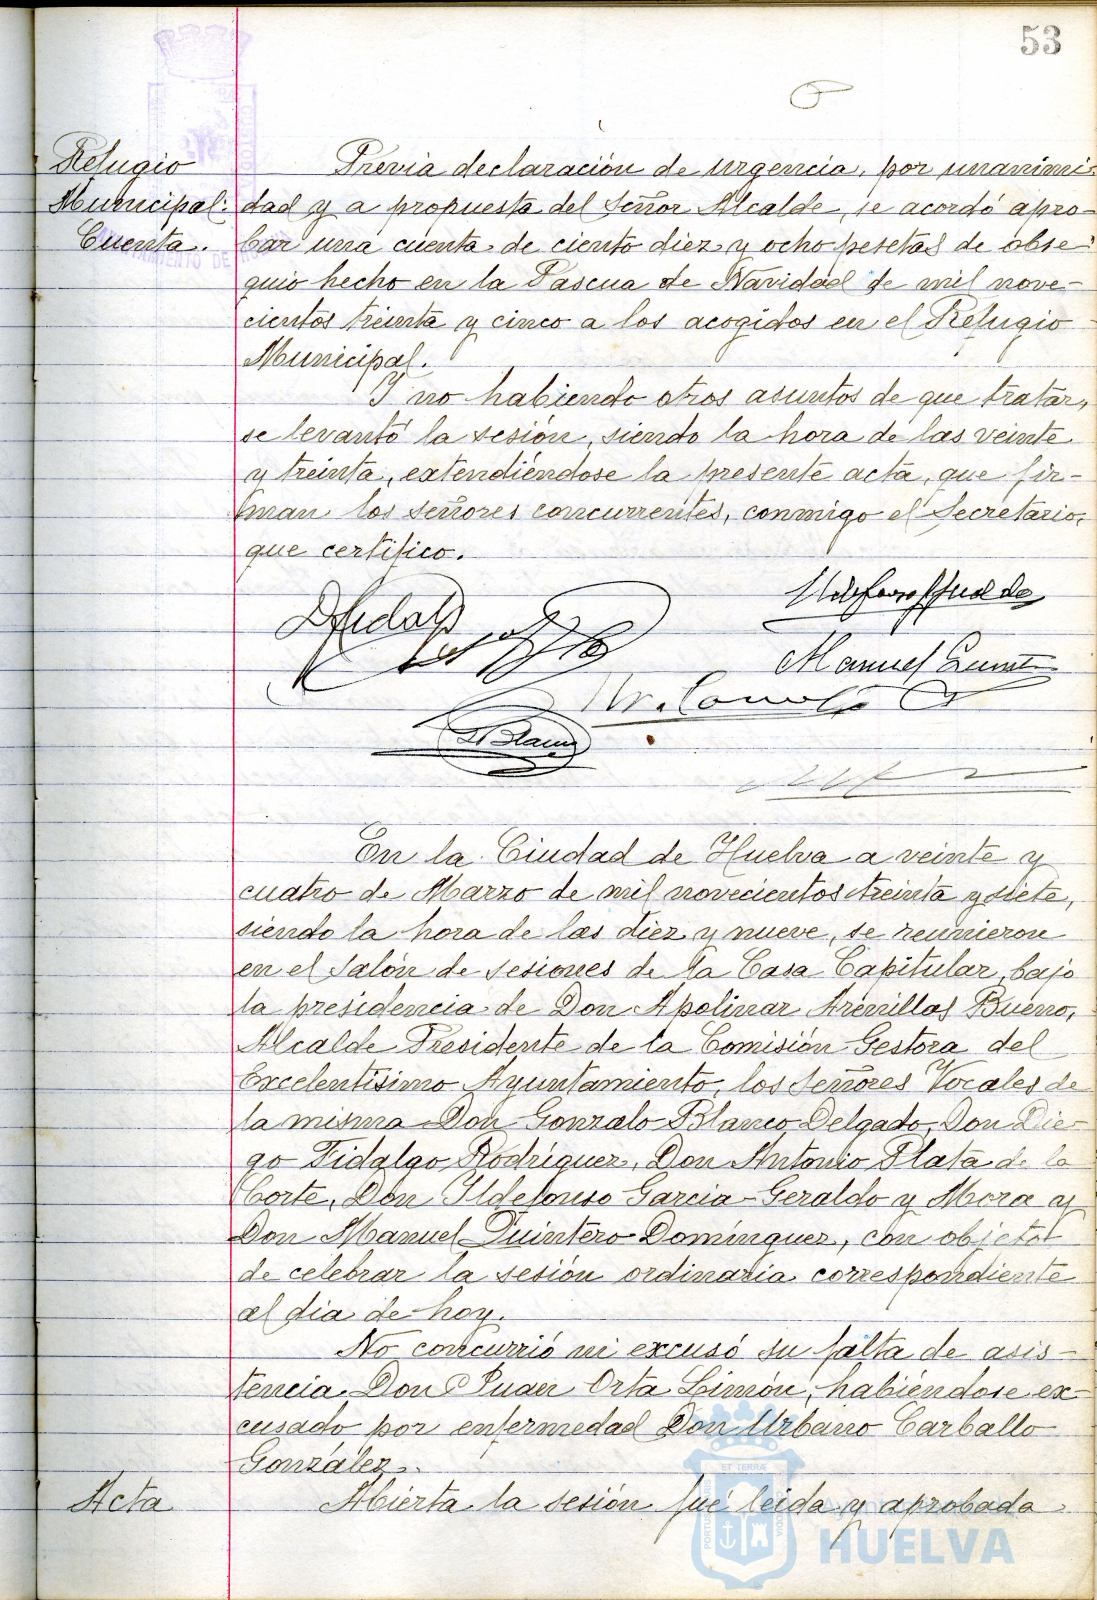 53
Refugio
Municipal.
Cuenta.
Previa declaración de urgencia, por unanimi-
dad y a propuesta del Señor Alcalde, se acordó apro-
bar una cuenta de ciento diez y ocho pesetas de obse-
quio hecho en la Pascua de Navidad de mil nove-
cientos treinta y cinco a los acogidos en el Refugio
Municipal.
Y no habiendo otros asuntos de que tratar,
se levantó la sesión, siendo la hora de las veinte
y treinta, extendiéndose la presente acta, que fir-
man los señores concurrentes, conmigo el Secretario,
que certifico.
D Fidalgo
Manuel Quint
Blanco
En la Ciudad de Huelva a veinte y
cuatro de Marzo de mil novecientos treinta y siete,
siendo la hora de las diez y nueve, se reunieron
en el salón de sesiones de la Casa Capitular, bajo
la presidencia de Don Apolinar Arenillas Bueno,
Alcalde Presidente de la Comisión Gestora del
Excelentísimo Ayuntamiento, los Señores Vocales de
la misma Don Gonzalo Blanco Delgado, Don Die-
go Fidalgo Rodríguez, Don Antonio Plata de la
Corte, Don Ildefonso García-Geraldo y Mora y
Don Manuel Quintero Domínguez, con objeto
de celebrar la sesión ordinaria correspondiente
al día de hoy.
No concurrió ni excusó su falta de asis-
tencia Don Juan Orta Limón, habiéndose ex-
cusado por enfermedad Don Urbano Carballo
González.
Acta
Abierta la sesión fué leida y aprobada
HUELVA